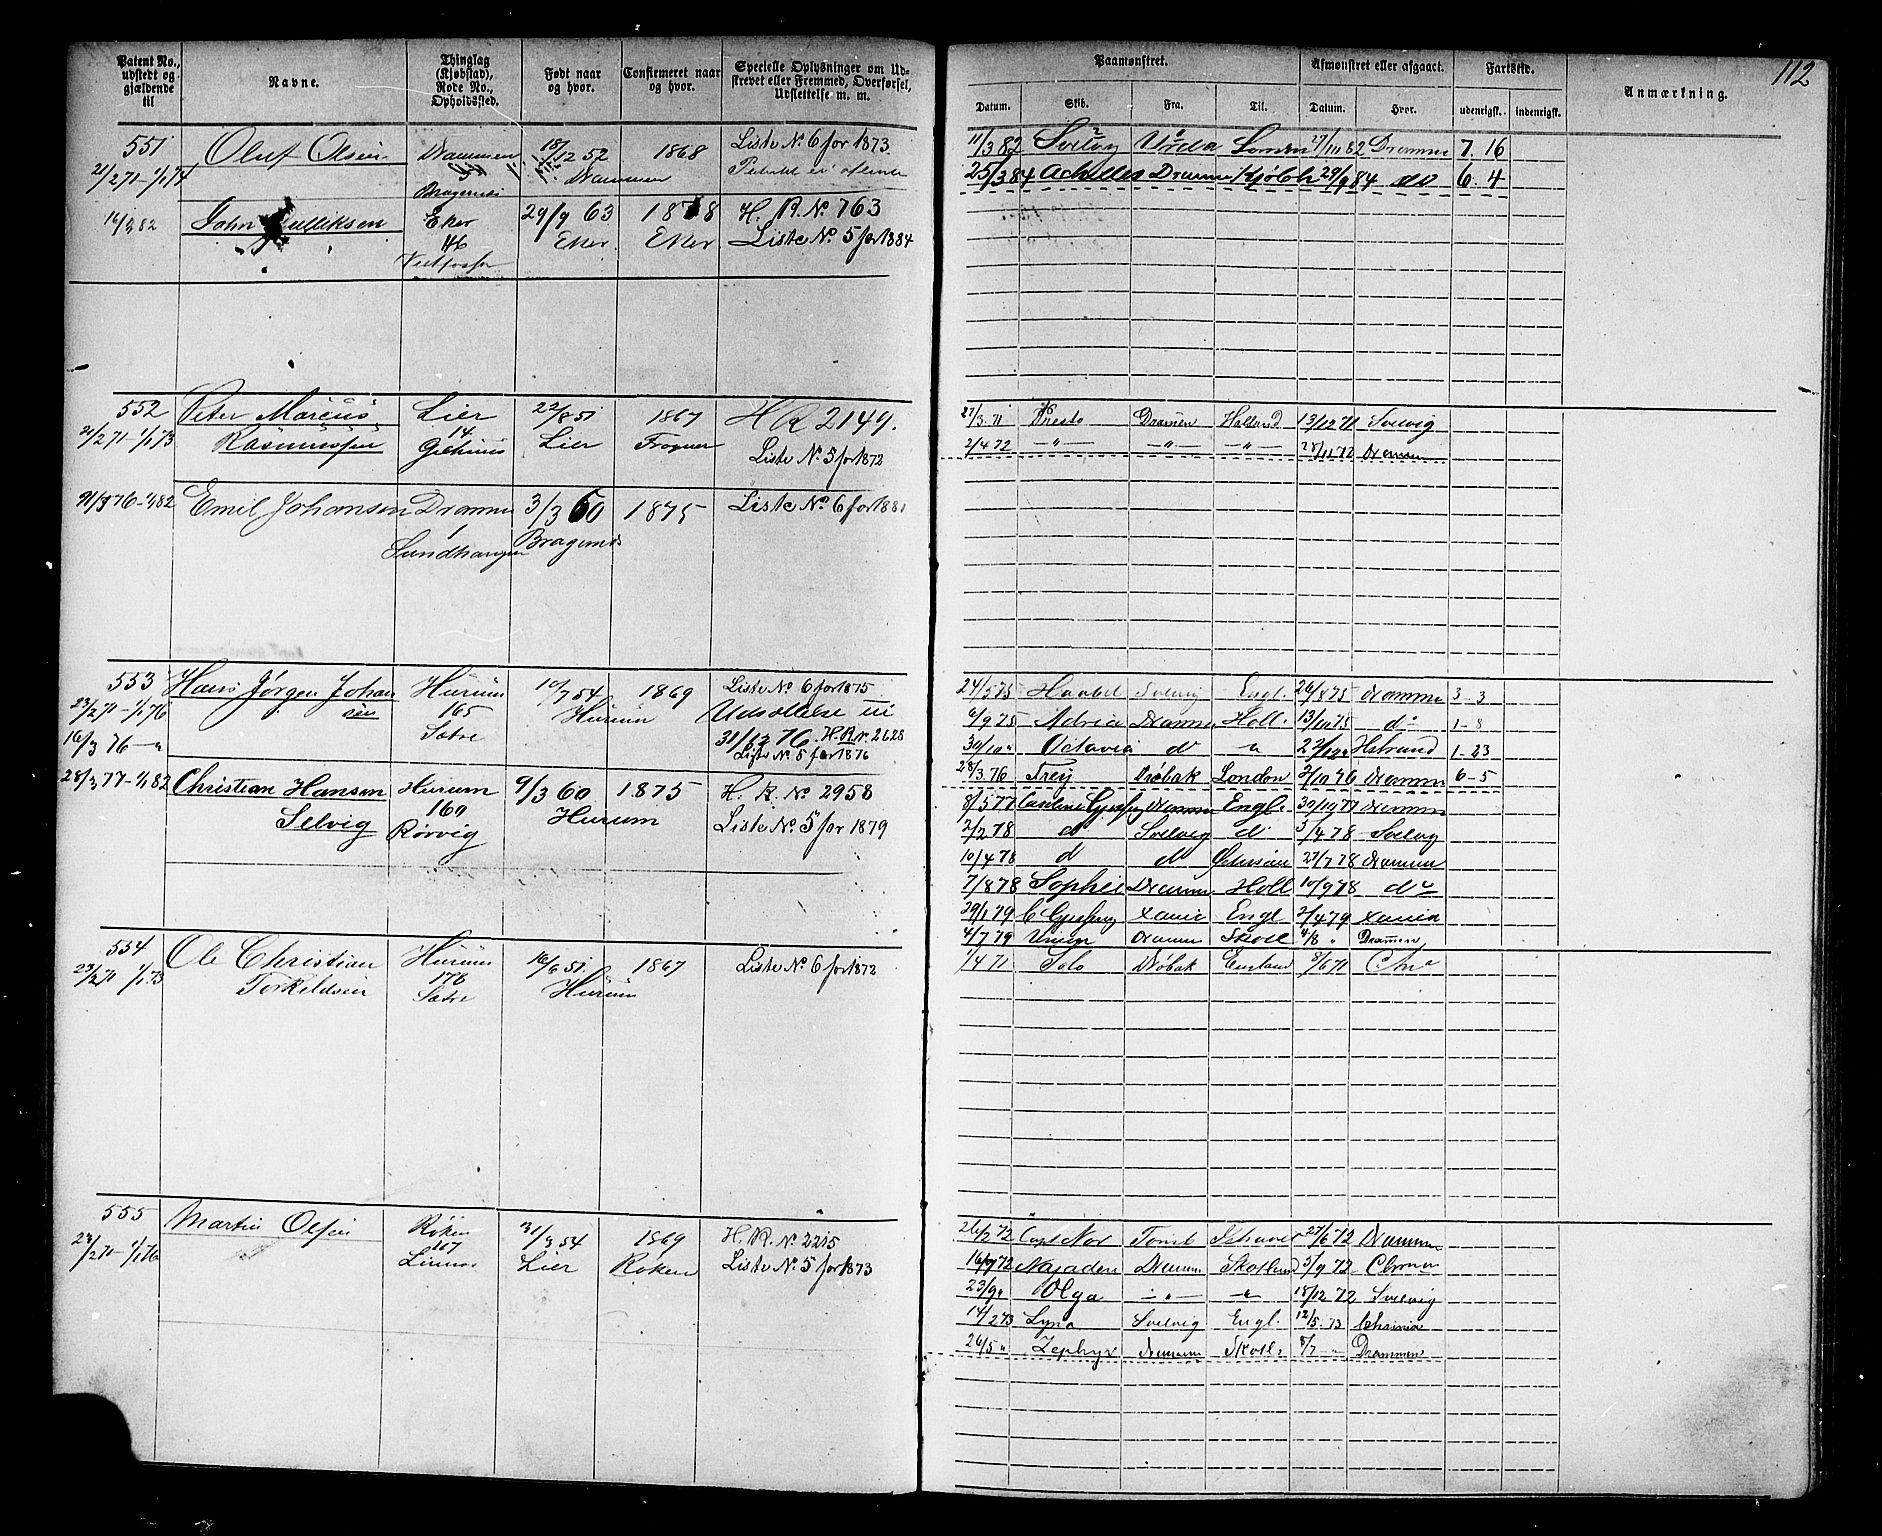 112
Patent No., udstedt og gjældende til
Navne.
Thinglag (Kjøbstad), Rode No., Opholdssted.
Født naar og hvor.
Confirmeret naar og hvor.
Specielle Oplysninger om Udskrevet eller Fremmed, Overførsel, Udslettelse m. m.
Paamønstret.
Afmønstret eller afgaaet.
Fartstid.
Anmærkning.
Datum. Skib. Fra. Til. Datum. Hvor. udenrigsk. indenrigsk.
551 Oluf Olsen Drammen 18/12 52 1868 Liste No. 6 for 1873
Drammen
Bragernæs
John Gulliksen Eker 29/9 63 1878 H. R. No. 763
46 Eker Eker Liste No. 5 for 1884
11/3 82 Svelvig 27/10 82 Dramm 7. 16
25/3 84 Achilles Dramm Kjøbh 29/9 84 do 6. 4
552 Peter Marcus Lier 22/8 51 1867 H R 2149.
21/2 71-1/1 73 Rasmussen 14 Lier Frogner
Gilhus Liste No. 5 for 1872
27/3 71 Presto Drammen Holland 13/12 71 Svelvig
2/4 72 -"- -"- -"- Drammen
Emil Johansen Drammen 3/3 60 1875 Liste No. 6 for 1881
1 Bragernæs
Sundhaugen
553 Hans Jørgen Johan Hurum 10/7 54 1869 Liste No. 6 for 1875
23/2 71-1/1 76 sen 165 Hurum Udsættelse til
16/3 76 Sætre 31/12 76. H. R. nr. 2628
Liste No. 5 for 1876
28/3 77-1/1 82 Christian Hansen Hurum 9/3 60 1875 H. R. No. 2958
Selvig 160 Hurum Liste No. 5 for 1879
Rørvig
24/5 75 Haabet Svelvig Engl. 26/8 75 Dramme 3-3
6/9 75 Adria Dramm Holl. 13/10 75 do 1-8
30/10 " Octavia do " Hstrand 1-23
28/3 76 Frey Drøbak London 2/10 76 Dramm 6-5
8/5 77 Dramm Engl. 30/10 77 Dramm
2/2 78 do Svelvig do 3/4 78 Svelvig
10/4 78 do do 27/7 78 Drammen
7/8 78 Sophie Dramm Holl 10/9 78 do
29/1 79 Xania Engl 2/4 79 Xania
4/7 79 Union Dramm Skotl 4/8 " Drammen
554 Ole Christian Hurum 16/6 51. 1867 Liste No. 6 for 1872
23/2 71 1/1 73 Torkildsen 176 Hurum
Sætre
1/4 71 Solo Drøbak England 3/6 71 Chra
555 Martin Olsen Røken 31/3 54 1869 H. R. No. 2215
23/2 71-1/1 76 167 Lier Røken Liste No. 5 for 1873
Linnes
26/2 72 Capt Nor 27/6 72 Drammen
16/7 72 Najaden Dramm Skotland 3/9 72
23/9 " Olga -"- -"- 18/12 72 Svelvig
14/2 73 Lyna Svelvig Engl. 12/5 73 Chania
26/5 " Zephyr Dramm Skotl. 8/7 " Drammen